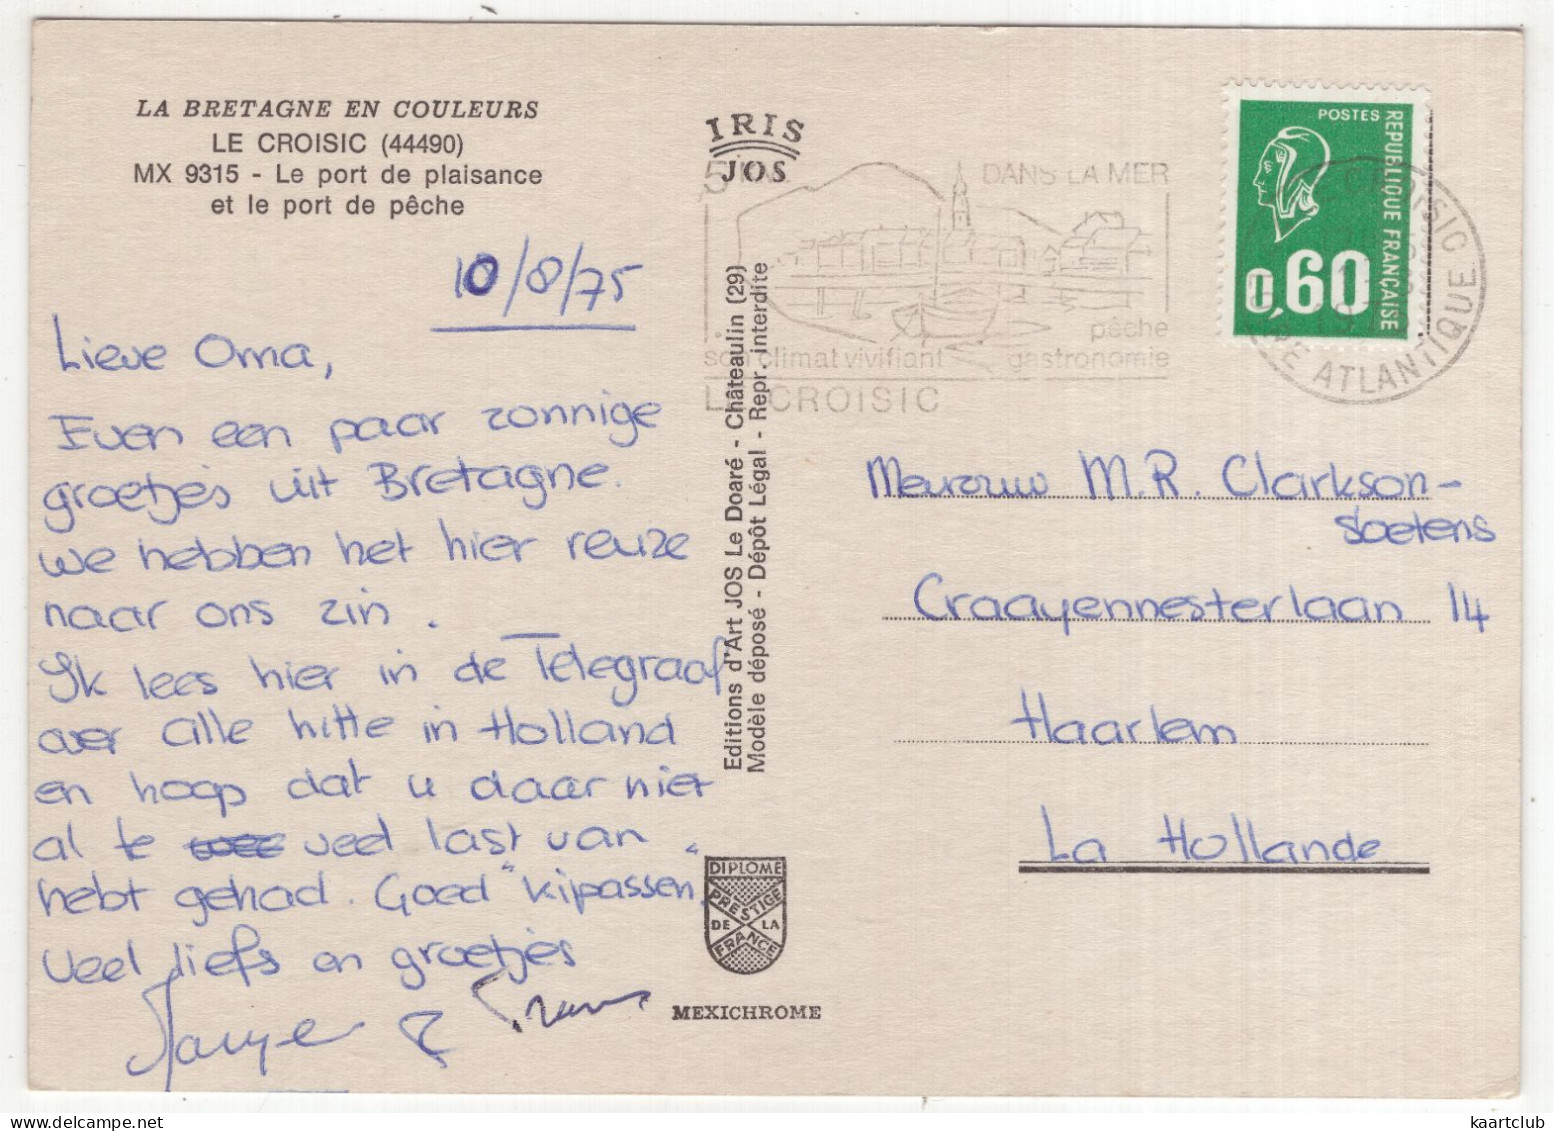 LA BRETAGNE EN COULEURS
LE CROISIC (44490)
MX 9315 - Le port de plaisance
et le port de pêche
10/8/75
Lieve Oma,
Even een paar zonnige
groetjes uit Bretagne.
we hebben het hier reuze
naar ons zin.
Ik lees hier in de Telegraaf
over alle hitte in Holland
en hoop dat u daar niet
al te veel last van
hebt gehad. Goed "kipassen"
veel liefs en groetjes
&
IRIS
JOS
Editions d'Art JOS Le Doaré - Châteaulin (29)
Modèle déposé - Dépôt Légal - Repr. interdite
DIPLOME
PRESTIGE
DE LA
FRANCE
MEXICHROME
DANS LA MER
pêche
son climat vivifiant gastronomie
LE CROISIC
POSTES
REPUBLIQUE FRANÇAISE
0,60
CROISIC
ATLANTIQUE
Mevrouw M.R. Clarkson-
Soetens
Craayennesterlaan 14
Haarlem
La Hollande
kaartclub